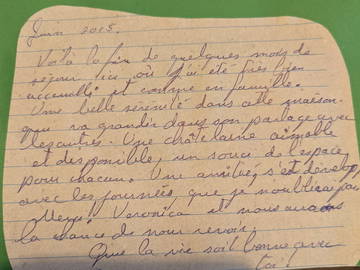 Juin 2015.
Voilà la fin de quelques mois de
séjour ici où j'ai été très bien
accueillie et comme en famille.
Une belle sérénité dans cette maison
qui va grandir dans son partage avec
les autres. Une châtelaine aimable
et disponible, un souci de l'espace
pour chacun. Une amitié s'est dévelop
avec les journées, que je n'oublierai pas
Merci Veronica et nous aurons
la chance de nous revoir.
Que la vie soit bonne avec
toi